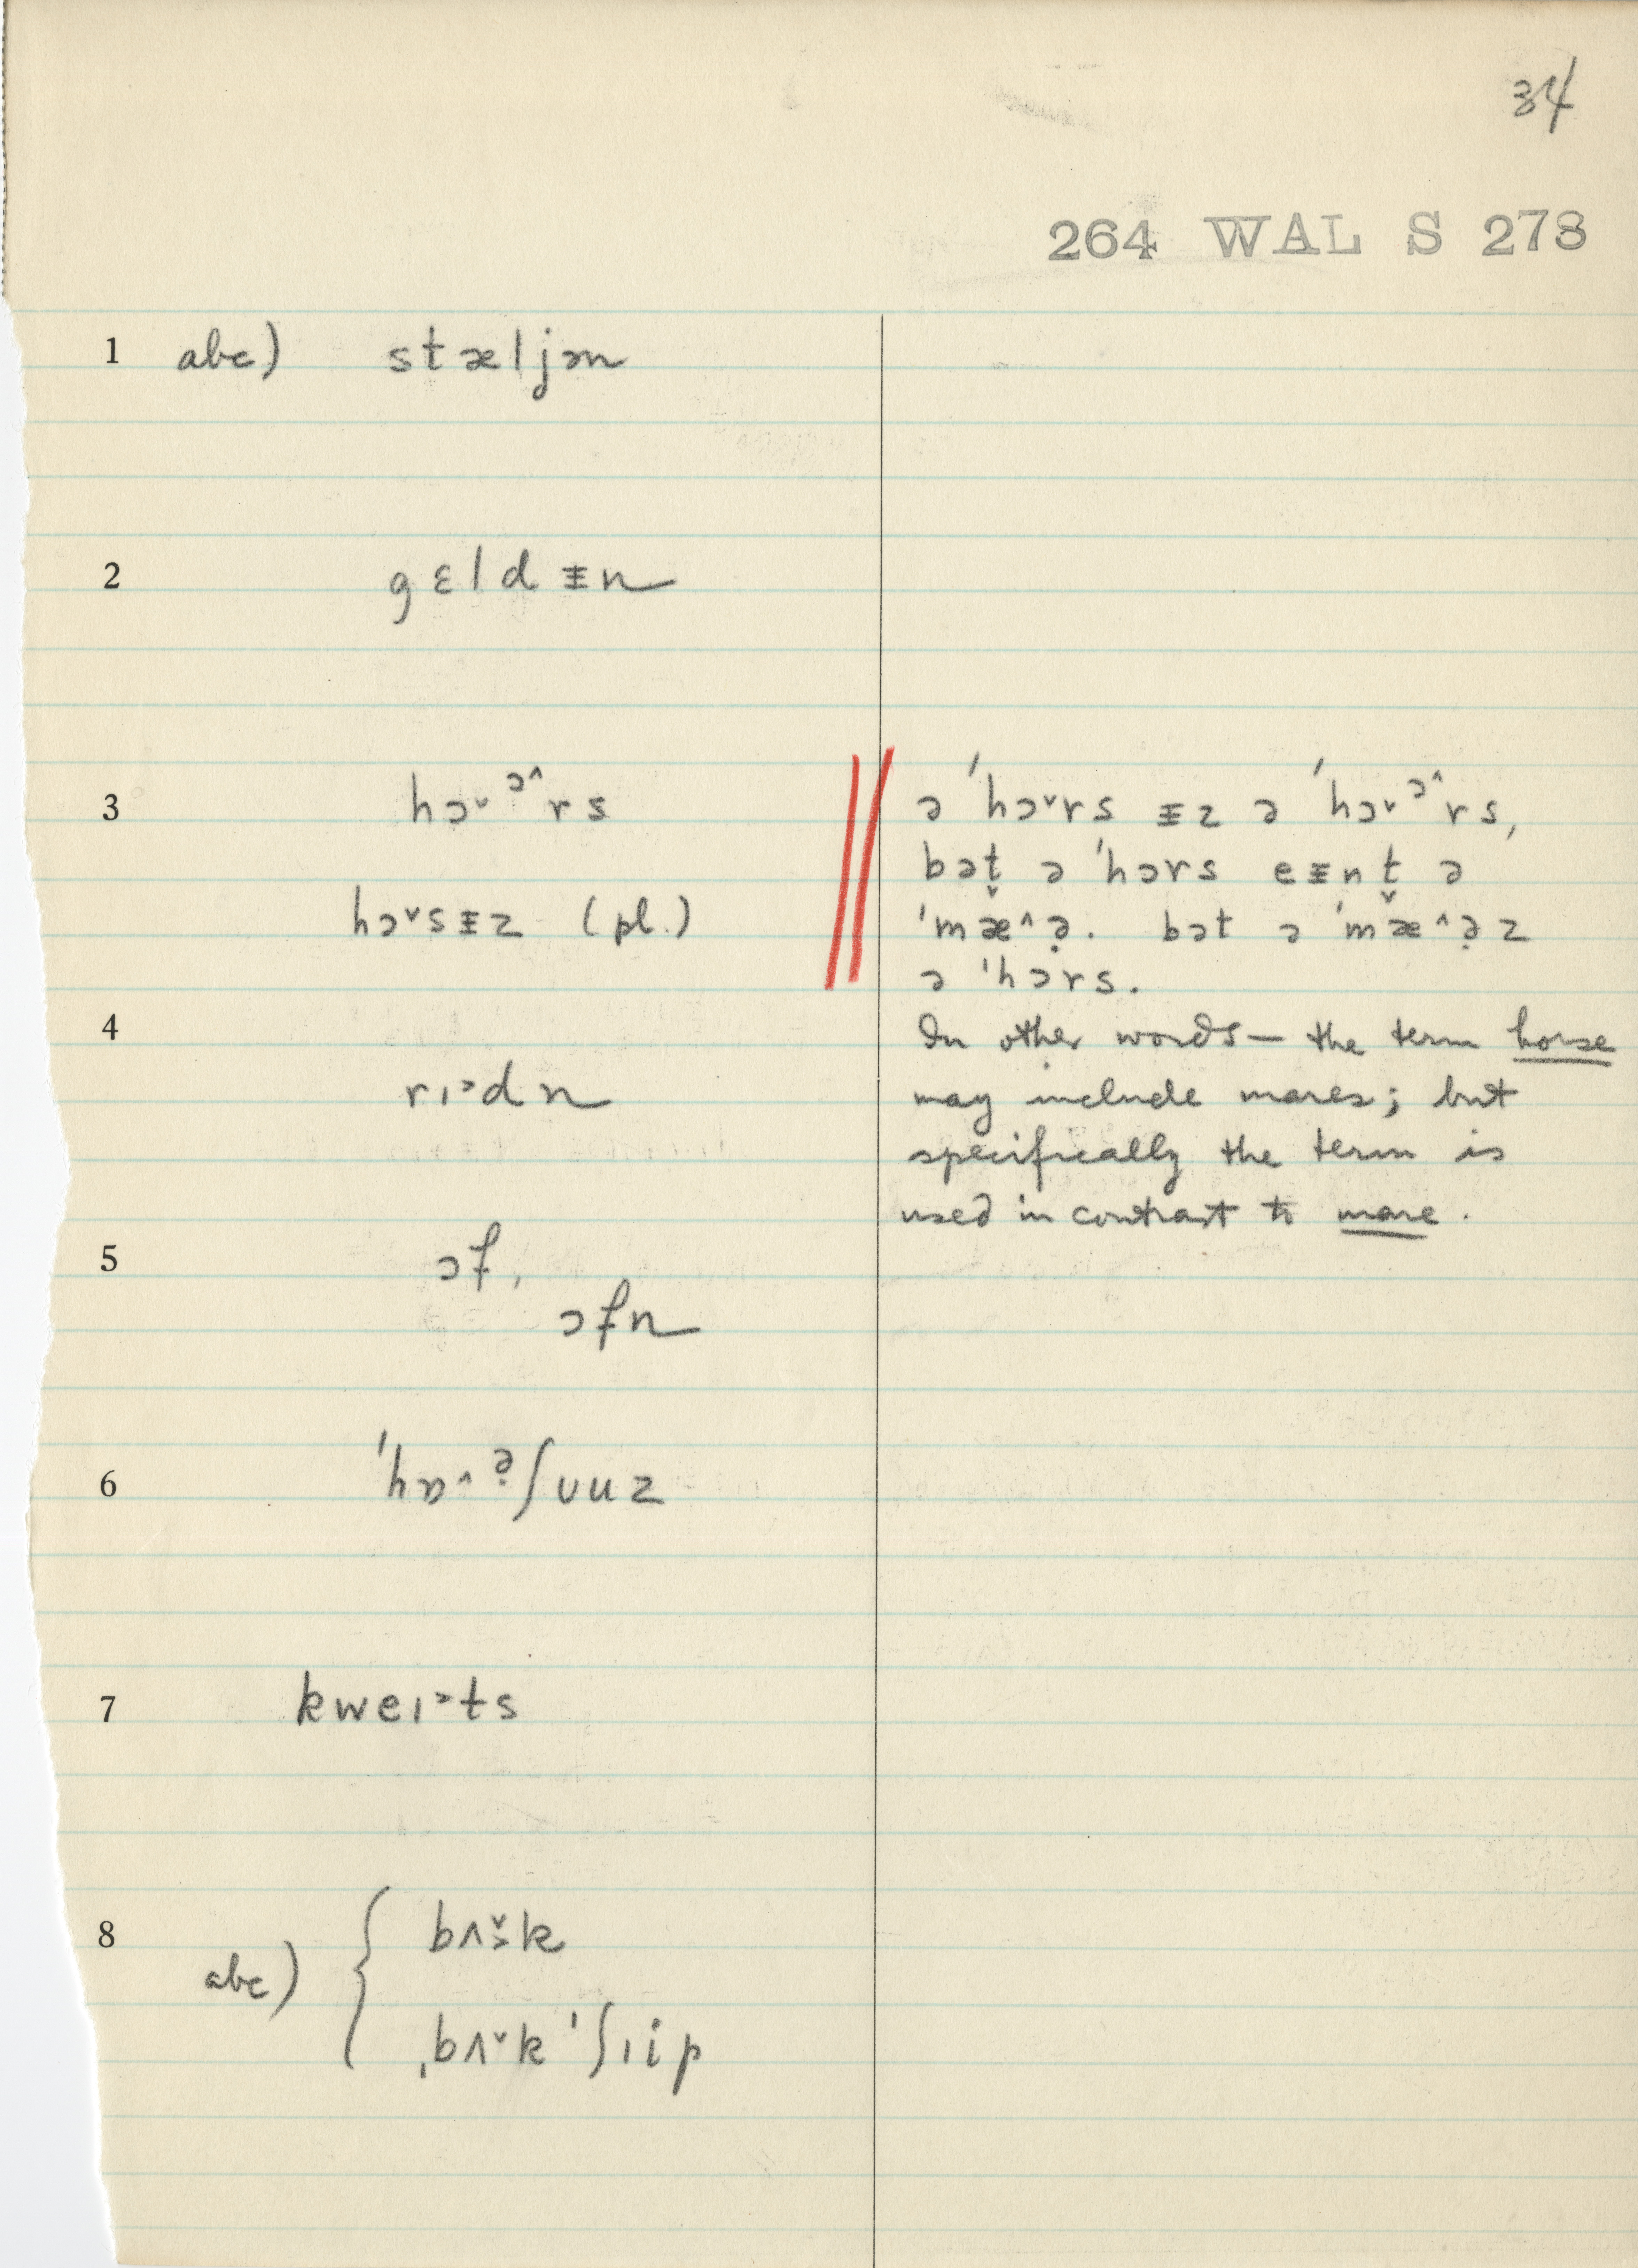 34
264 WAL S 278
1 abc) stæljən
2 gɛldᵻn
3 hɔ˅ᵊ^rs
hɔ˅sᵻz (pl.)
ə 'hɔ˅rs ᵻz ə 'hɔ˅ᵊ^rs,
bət̬ ə 'hɔrs eᵻnt̬ ə
'mæ^ə̣. bət ə 'mæ^ə̣z
ə 'hɔrs.
4 rɪ˃dn
In other words — the term horse
may include mares; but
specifically the term is
used in contrast to mare.
5 ɔf,
ɔfn
6 'hɒ^ə̣ʃʊuz
7 kweɪ˃ts
8 abc) { bʌ˅˃k
ˌbʌ˅k 'ʃɪip